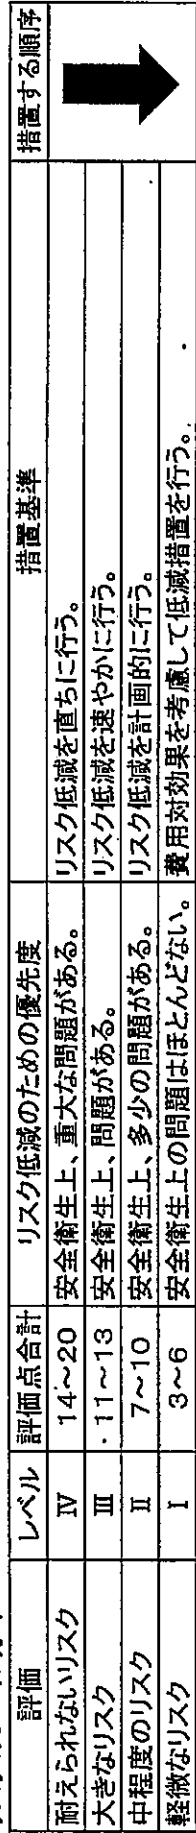 評価 レベル 評価点合計 リスク低減のための優先度 措置基準 措置する順序
耐えられないリスク Ⅳ 14～20 安全衛生上、重大な問題がある。 リスク低減を直ちに行う。
大きなリスク Ⅲ 11～13 安全衛生上、問題がある。 リスク低減を速やかに行う。
中程度のリスク Ⅱ 7～10 安全衛生上、多少の問題がある。 リスク低減を計画的に行う。
軽微なリスク Ⅰ 3～6 安全衛生上の問題はほとんどない。 費用対効果を考慮して低減措置を行う。